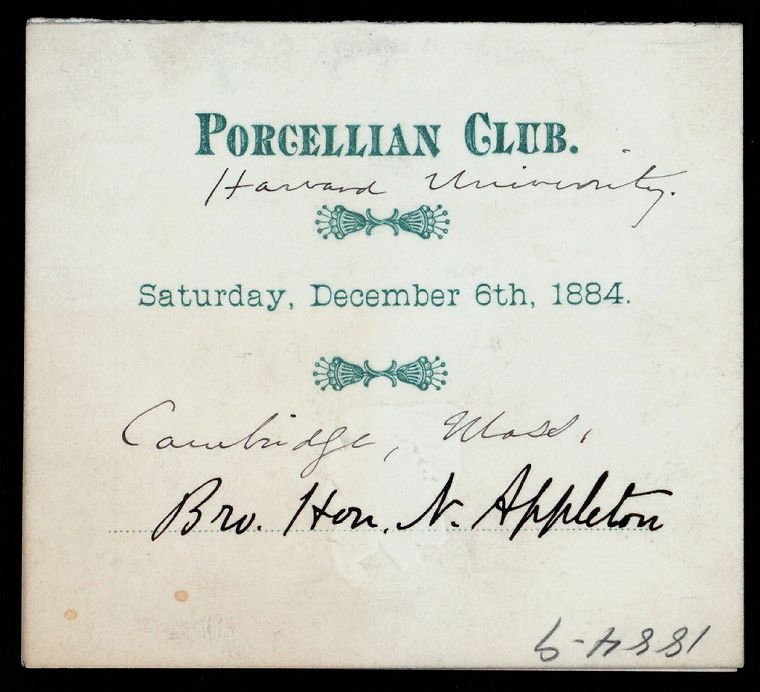 PORCELLIAN CLUB.
Harvard University.
Saturday, December 6th, 1884.
Cambridge, Mass,
Bro. Hon. N. Appleton
1884-9